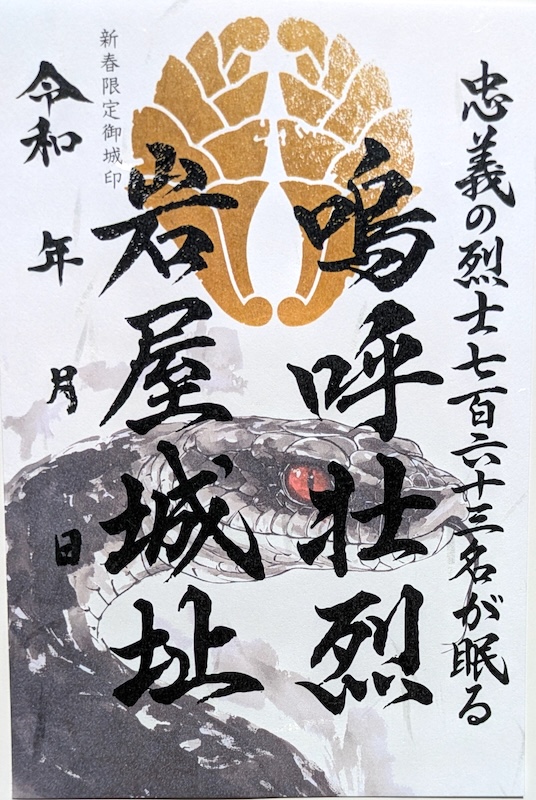 忠義の烈士七百六十三名が眠る
嗚呼壮烈
岩屋城址
新春限定御城印
令和 年 月 日